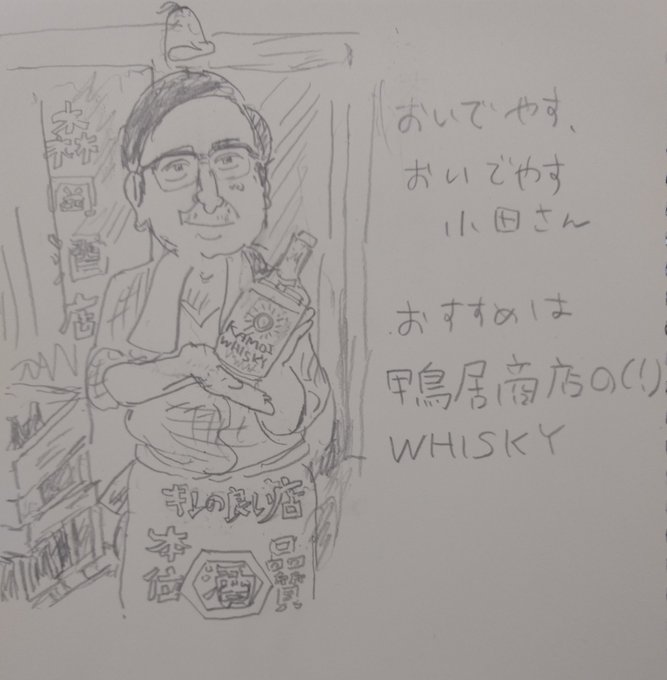 おいでやす、
おいでやす
小田さん
おすすめは
鴨居商店の(!)
WHISKY
KAMOI
WHISKY
の良い店
品質
本位
酒